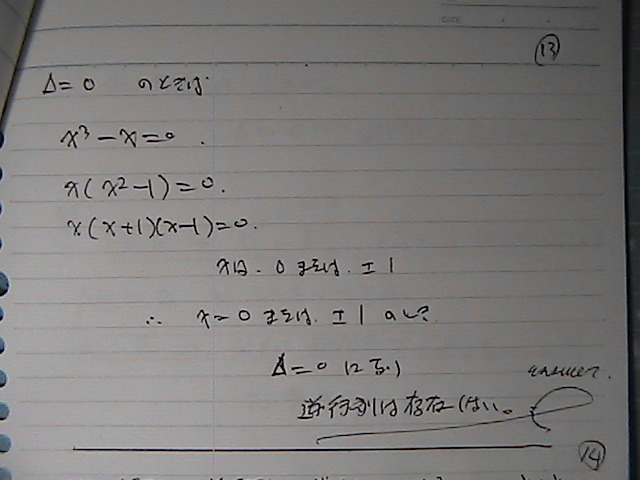 DATE
⑬
Δ=0 のときは.
x³-x=0.
x(x²-1)=0.
x(x+1)(x-1)=0.
xは. 0または. ±1
∴ x=0または. ±1のとき
Δ=0になり
逆行列は存在しない。 answer.
⑭